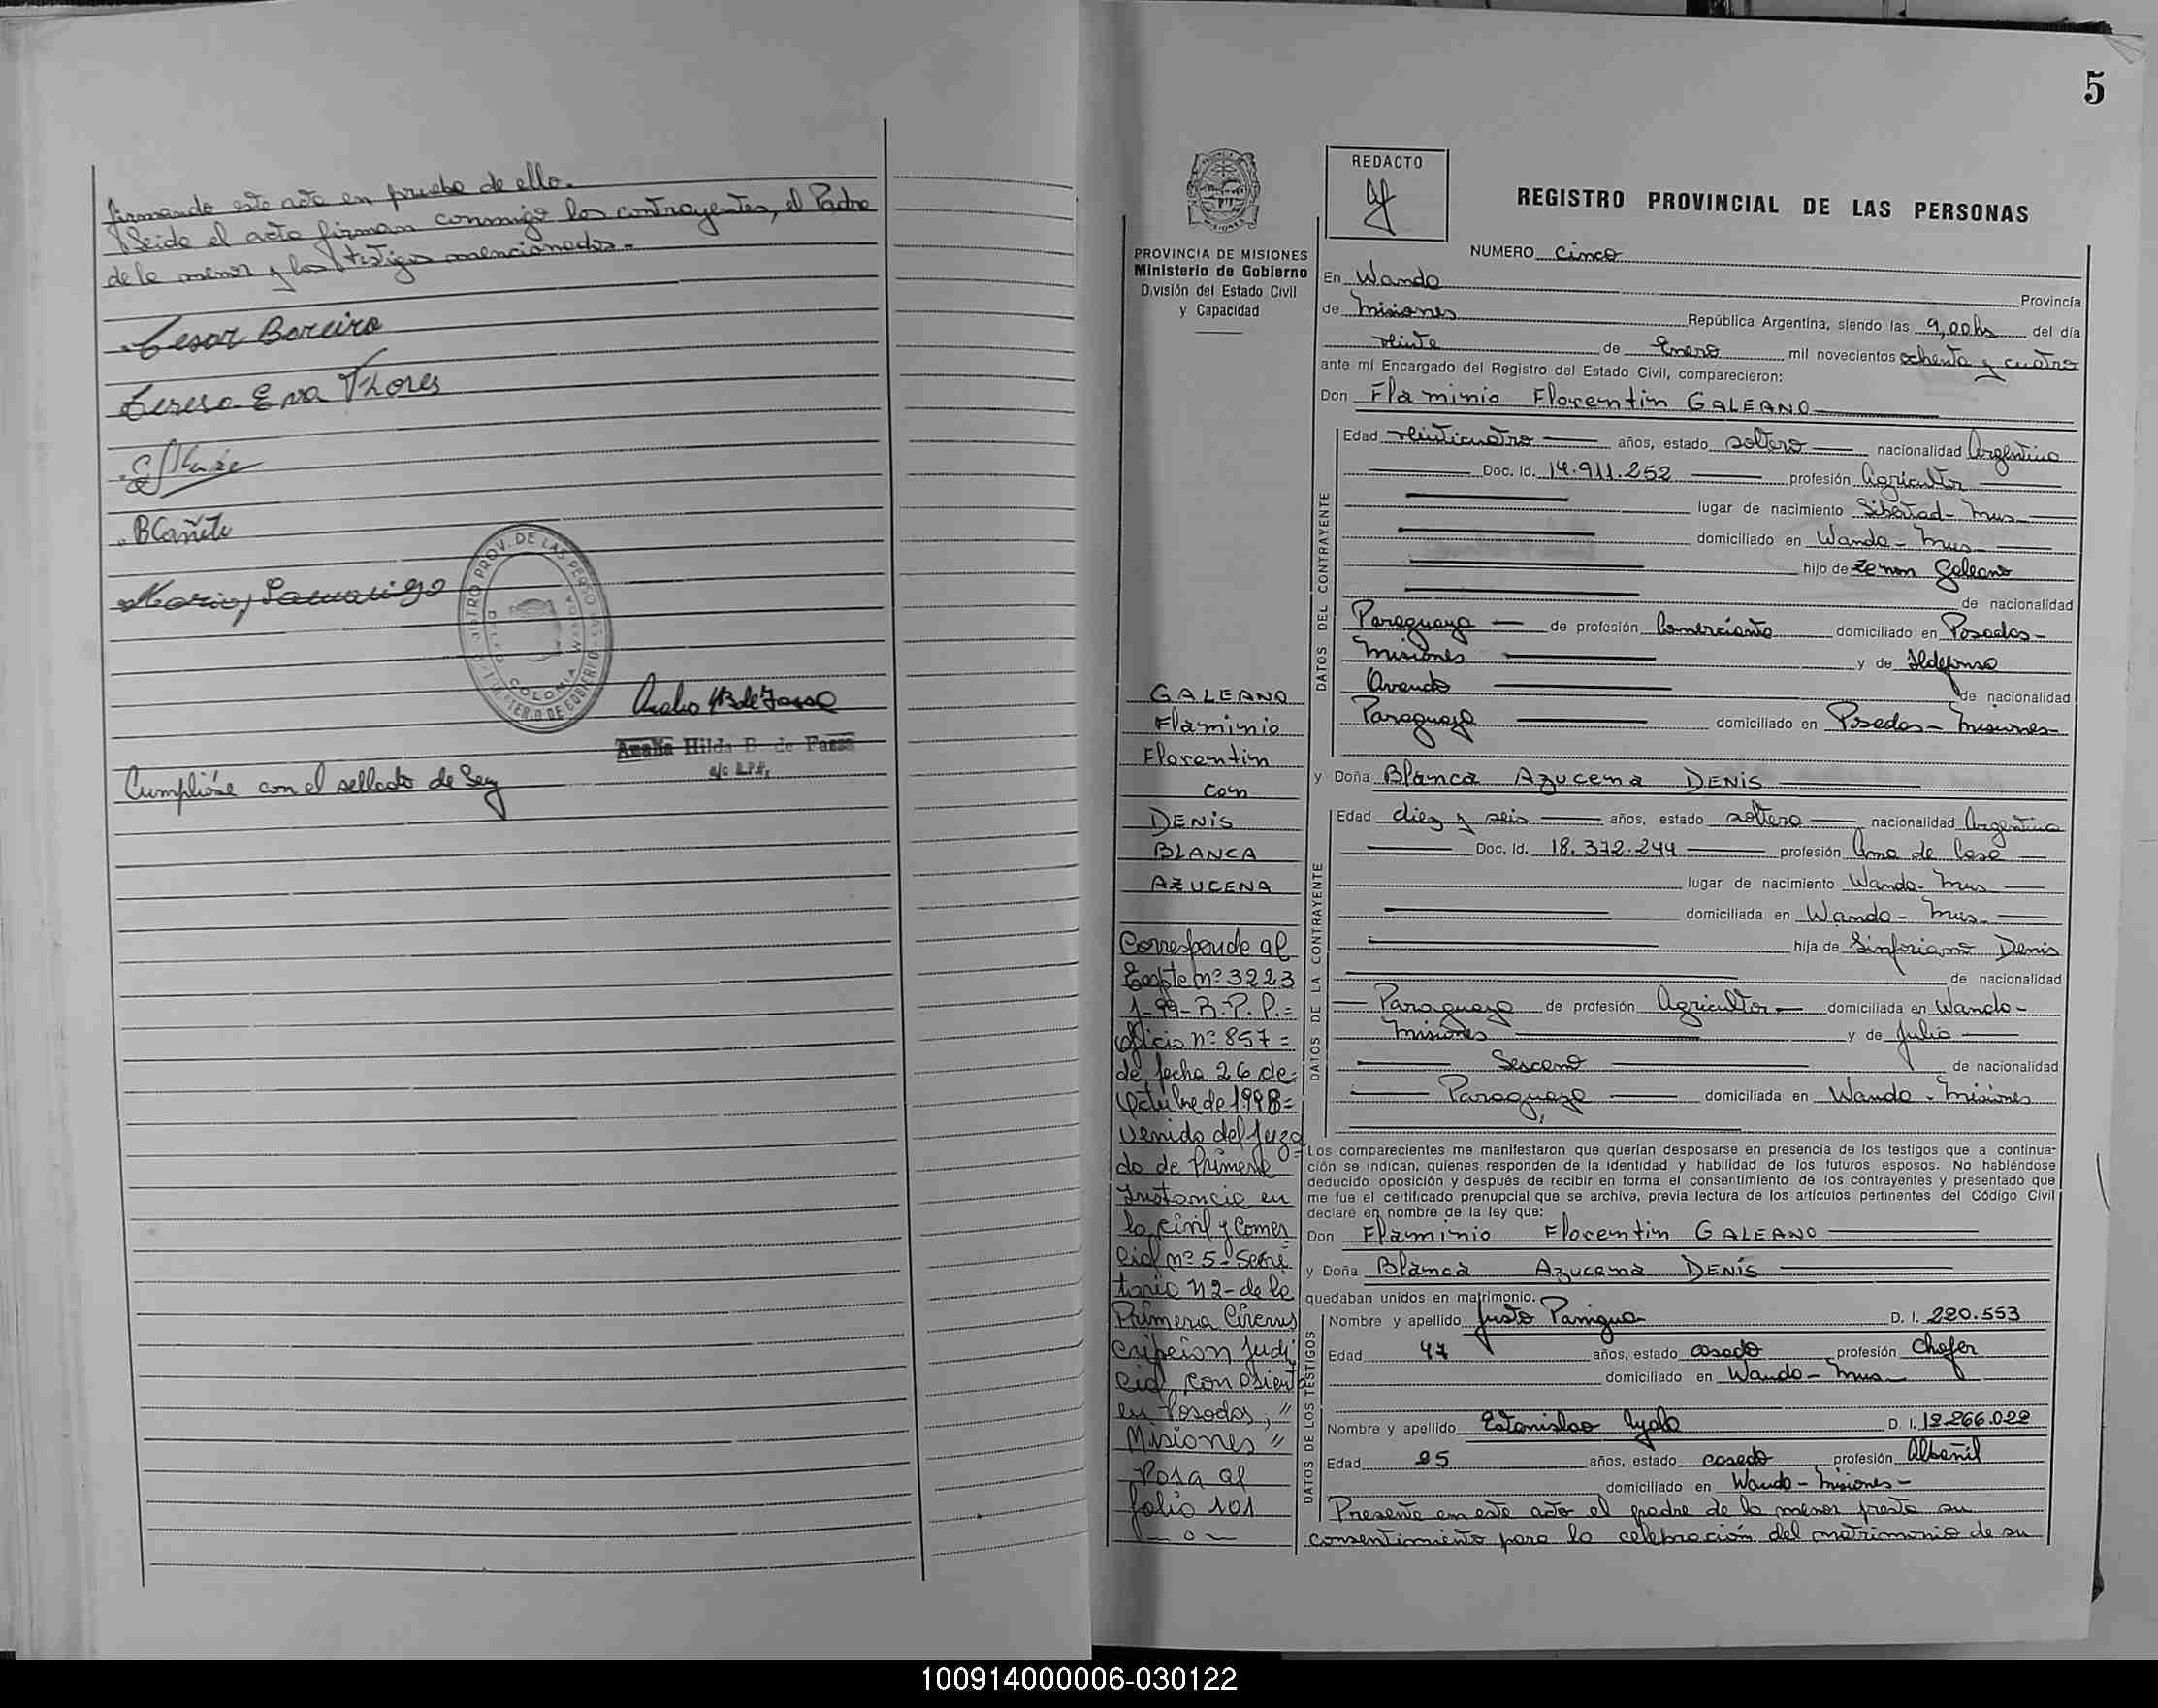 firmando este acta en prueba de ello.
Leido el acta firman conmigo los contrayentes, el Padre
de la menor y los testigos mencionados.
Cesar Bareiro
Teresa Eva Flores
BCañete
Amalia Hilda B. de
Cumplióse con el sellado de Ley
COLONIA WANDA
5
PROVINCIA DE MISIONES
Ministerio de Gobierno
División del Estado Civil
y Capacidad
REDACTO
REGISTRO PROVINCIAL DE LAS PERSONAS
NUMERO cinco
En Wanda Provincia
de Misiones República Argentina, siendo las 9,00hs del día
veinte de Enero mil novecientos ochenta y cuatro
ante mí Encargado del Registro del Estado Civil, comparecieron:
Don Flaminio Florentin GALEANO
DATOS DEL CONTRAYENTE
Edad veinticuatro años, estado soltero nacionalidad Argentina
Doc. Id. 14.911.252 profesión Agricultor
lugar de nacimiento Libertad - Mnes
domiciliado en Wanda - Mnes
hijo de Zenon Galeano
de nacionalidad
Paraguaya de profesión Comerciante domiciliado en Posadas-
Misiones y de Ildefonsa
Ovando de nacionalidad
Paraguaya domiciliado en Posadas - Misiones-
y Doña Blanca Azucena DENIS
DATOS DE LA CONTRAYENTE
Edad diez y seis años, estado soltera nacionalidad Argentina
Doc. Id. 18.372.244 profesión Ama de Casa
lugar de nacimiento Wanda - Mnes
domiciliada en Wanda - Mnes
hija de Sinforiano Denis
de nacionalidad
Paraguaya de profesión Agricultor domiciliada en Wanda-
Misiones y de Julia
de nacionalidad
Paraguaya domiciliada en Wanda - Misiones
Los comparecientes me manifestaron que querían desposarse en presencia de los testigos que a continua-
ción se indican, quienes responden de la identidad y habilidad de los futuros esposos. No habiéndose
deducido oposición y después de recibir en forma el consentimiento de los contrayentes y presentado que
me fue el certificado prenupcial que se archiva, previa lectura de los artículos pertinentes del Código Civil
declaré en nombre de la ley que:
Don Flaminio Florentin GALEANO
y Doña Blanca Azucena DENIS
quedaban unidos en matrimonio.
DATOS DE LOS TESTIGOS
Nombre y apellido Justo D. I. 220.553
Edad 47 años, estado casado profesión Chofer
domiciliado en Wanda - Mnes
Nombre y apellido Estanislao Ayala D. I. 12.266.022
Edad 25 años, estado casado profesión Albañil
domiciliado en Wanda - Misiones-
Presente en este acto el padre de la menor presta su
consentimiento para la celebración del matrimonio de su
GALEANO
Flaminio
Florentin
con
DENIS
BLANCA
AZUCENA
Corresponde al
Expte nº 3223
1-99-B.P.P.=
Oficio nº 857=
de fecha 26 de
Octubre de 1998=
venido del Juzga
do de Primera
Instancia en
lo civil y Comer
cial nº 5- Secre
taria n 2- de la
Primera Circuns
cripcion Judi
cial, con asiento
en Posadas, "
Misiones "
Pasa al
folio 101
-o-
100914000006-030122